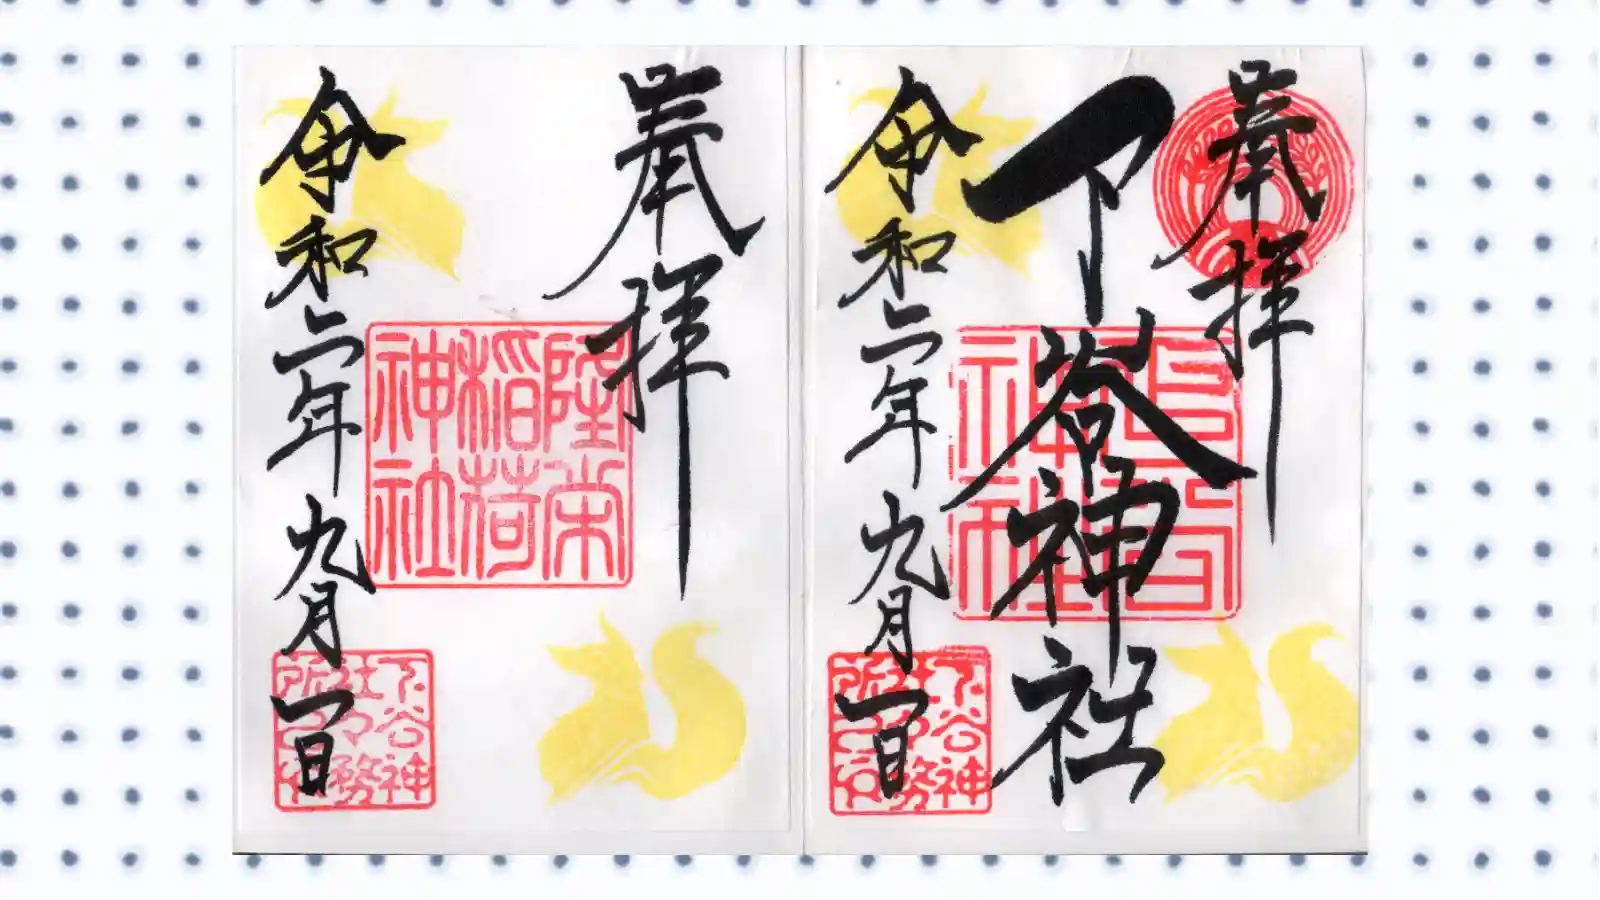 奉拝
下谷神社
令和二年九月一日
下谷神社
下谷神社社務所
奉拝
隆栄稲荷神社
令和二年九月一日
下谷神社社務所